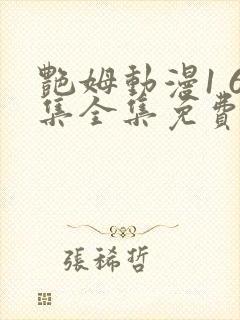 艷姆動漫1 6
集全集免費
張稀哲